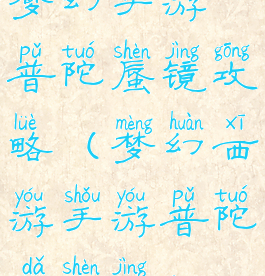 梦幻手游
pǔ tuó shèn jìng gōng
普陀蜃镜攻
lüè mèng huàn xī
略（梦幻西
yóu shǒu yóu pǔ tuó
游手游普陀
dǎ shèn jìng